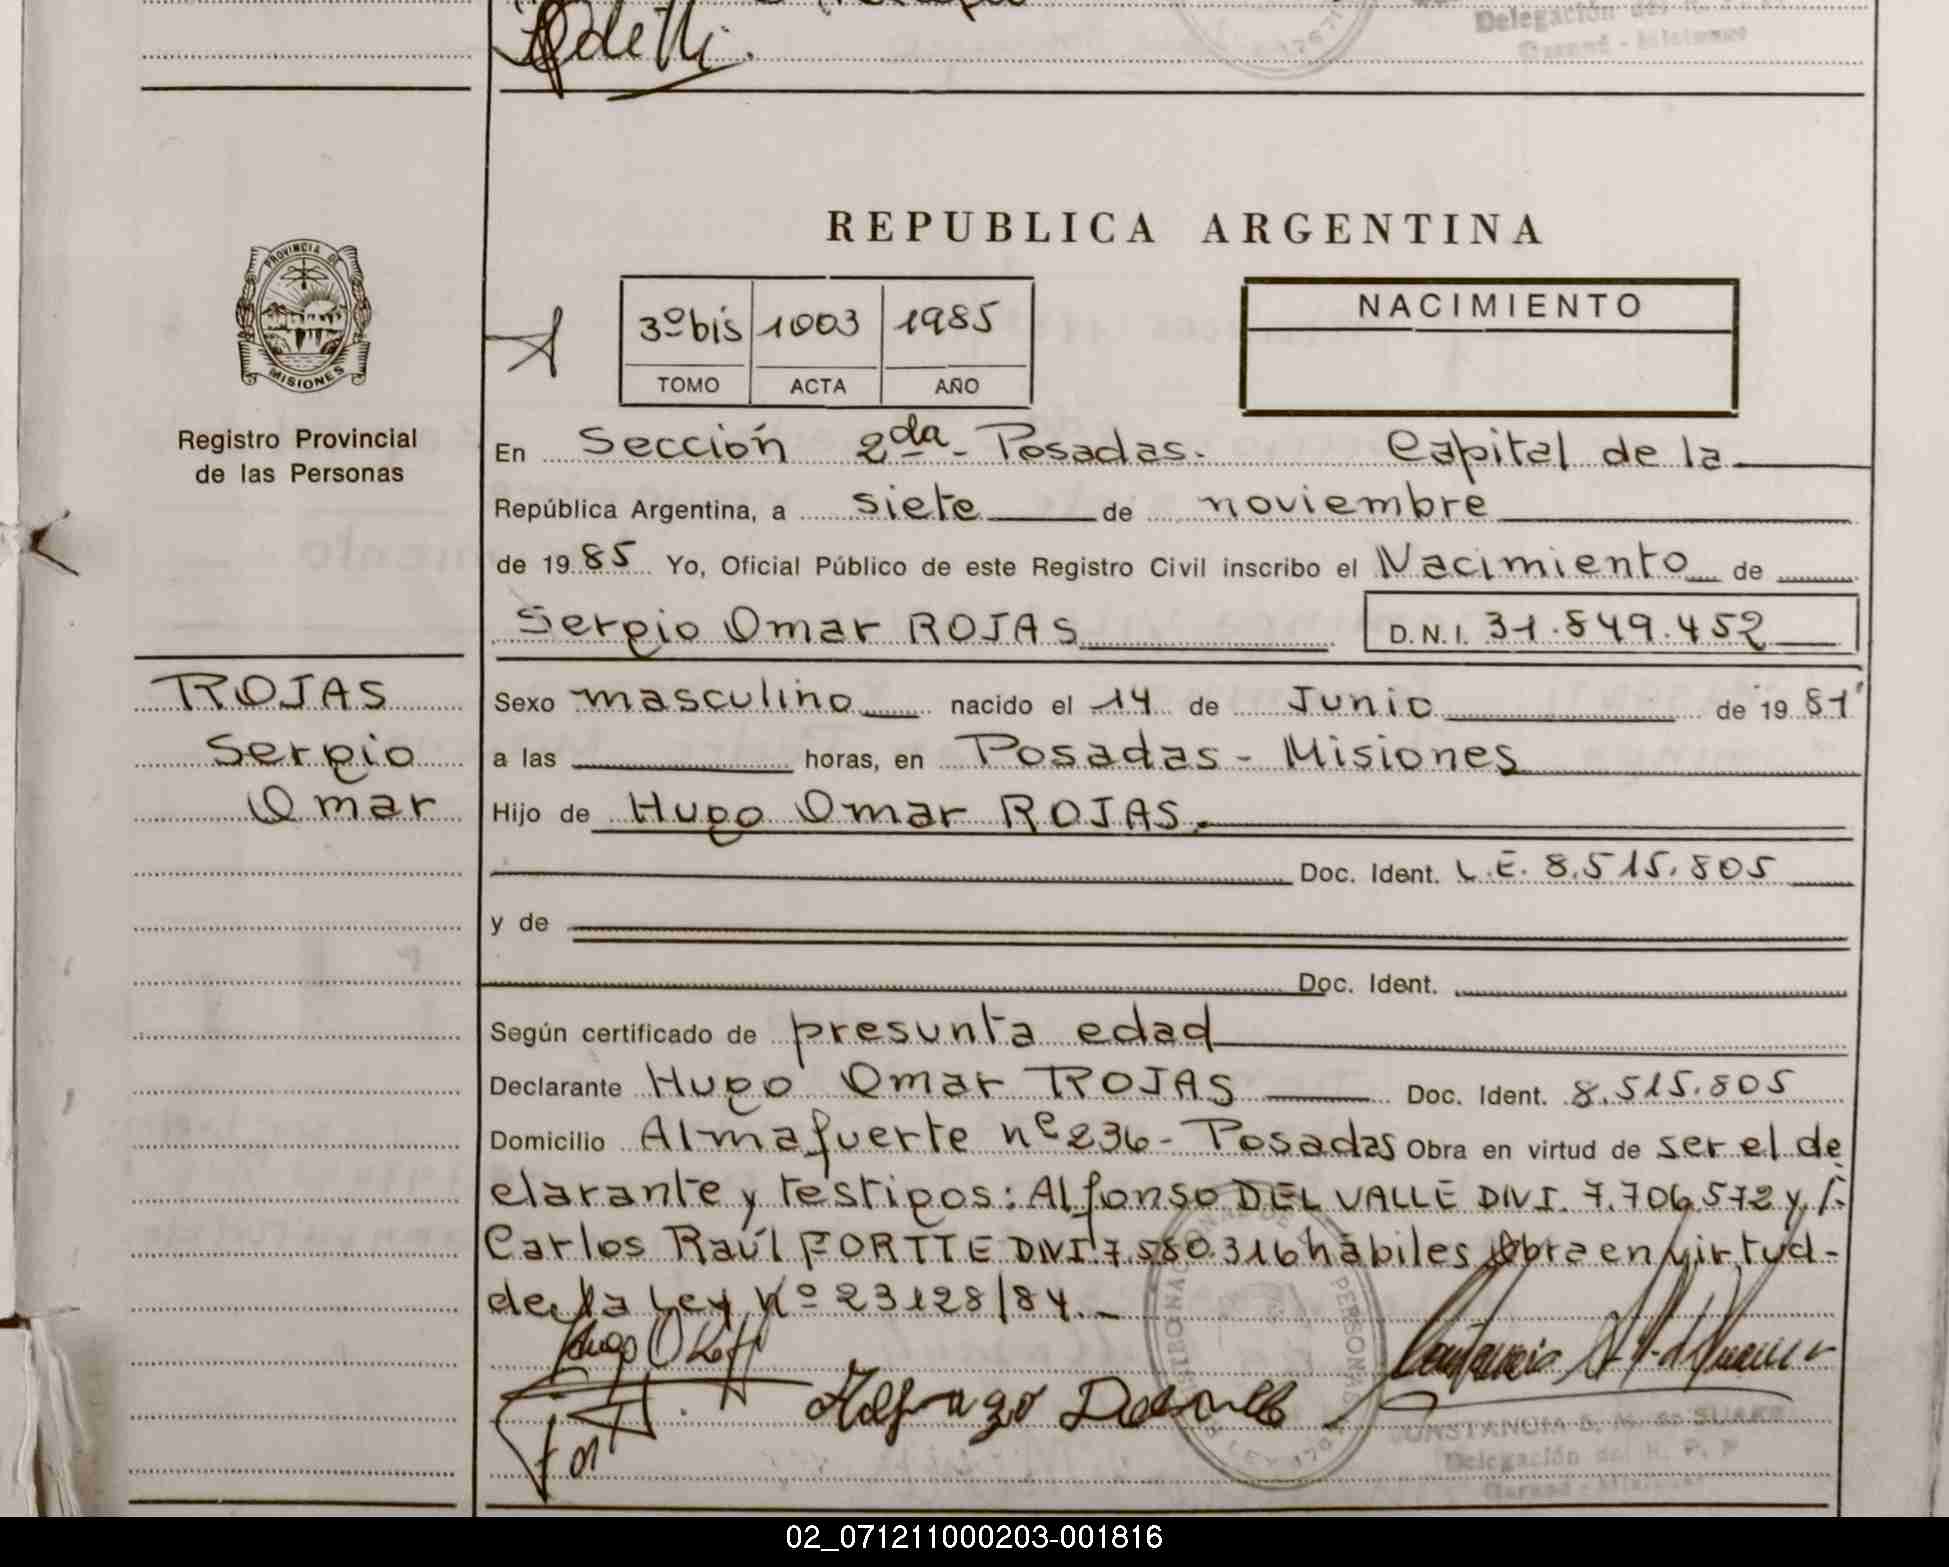 Delegación del R. P. P.
Garupá - Misiones
REPUBLICA ARGENTINA
PROVINCIA DE
MISIONES
Registro Provincial
de las Personas
3º bis 1003 1985
TOMO ACTA AÑO
NACIMIENTO
En Sección 2da - Posadas. Capital de la
República Argentina, a siete de noviembre
de 1985 Yo, Oficial Público de este Registro Civil inscribo el Nacimiento de
Sergio Omar ROJAS D.N.I. 31.849.452
ROJAS
Sergio
Omar
Sexo masculino nacido el 14 de Junio de 1981
a las horas, en Posadas - Misiones
Hijo de Hugo Omar ROJAS.
Doc. Ident. L.E. 8.515.805
y de
Doc. Ident.
Según certificado de presunta edad
Declarante Hugo Omar ROJAS Doc. Ident. 8.515.805
Domicilio Almafuerte nº 236 - Posadas Obra en virtud de ser el de
clarante y testigos: Alfonso DEL VALLE DNI. 7.706.572 y
Carlos Raúl FORTTE DNI 7.550.316 hábiles Obra en virtud-
de la Ley Nº 23128/84.-
CONSTANCIA S. M. de SUAREZ
Delegación del R. P. P.
Garupá - Misiones
02_071211000203-001816